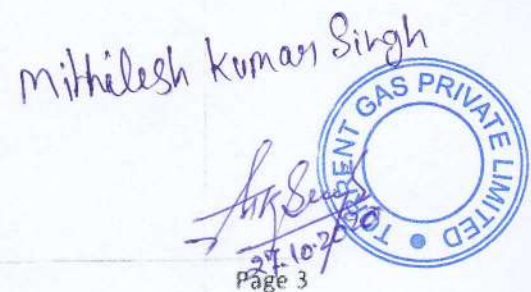 Mithilesh Kumar Singh
TORRENT GAS PRIVATE LIMITED
27.10.2020
Page 3